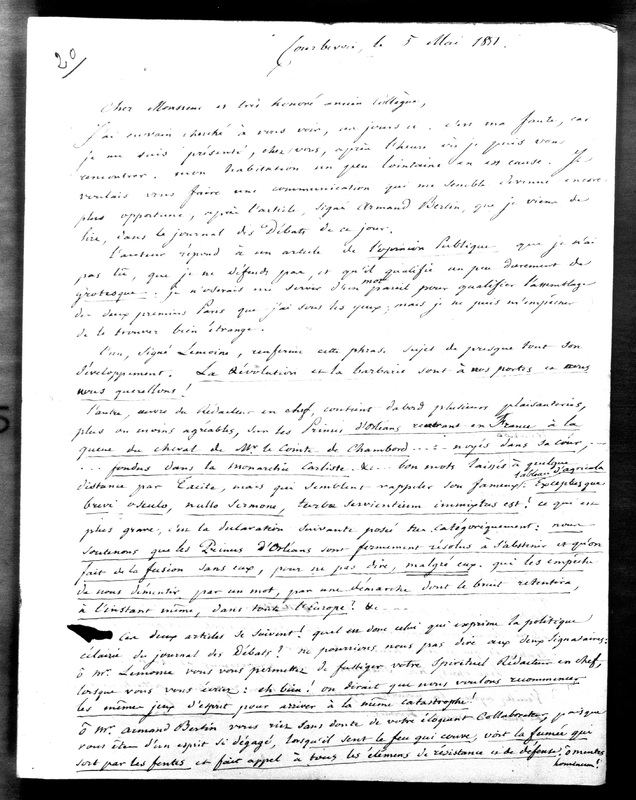 20/
Courbevoie, le 5 Mai 1851.
Cher Monsieur et très honoré ancien Collègue,
J'ai en vain cherché à vous voir, ces jours ci. c'est ma faute, car
je me suis présenté, chez vous, après l'heure où je puis vous
rencontrer. mon habitation un peu lointaine en est cause. Je
voulais vous faire une communication qui me semble devenue encore
plus opportune, après l'article, signé Armand Bertin, que je viens de
lire, dans le journal des Débats de ce jour.
L'auteur répond à un article de l'opinion Publique que je n'ai
pas lu, que je ne défends pas, et qu'il qualifie un peu durement de
grotesque. je n'oserais me servir d'un mot pareil pour qualifier l'assemblage
des deux premiers Paris que j'ai sous les yeux; mais je ne puis m'empêcher
de le trouver bien étrange.
l'un, signé Lemoine, renferme cette phrase sujet de presque tout son
développement. La Révolution et la barbarie sont à nos portes et nous
nous querellons!
l'autre, œuvre du Rédacteur en chef, contient d'abord plusieurs plaisanteries,
plus ou moins agréables, sur les Princes d'Orléans rentrant en France à la
queue du cheval de Mr le Comte de Chambord ... noyés dans sa cour, ...
... fondus dans la monarchie Carliste, &c .. bon mots laissés à quelque
distance par Tacite, mais qui semblent rappeler son fameux tableau d'Agricola: Exceptusque
brevi osculo, nullo sermone, turbæ servientium immixtus est! ce qui est
plus grave, c'est la déclaration suivante posée très catégoriquement: nous
soutenons que les Princes d'Orléans sont fermement résolus à s'abstenir et qu'on
fait de la fusion sans eux, pour ne pas dire, malgré eux. qui les empêche
de nous démentir par un mot, par une démarche dont le bruit retentira,
à l'instant même, dans toute l'Europe! &c ...
Ces deux articles se suivent! quel est donc celui qui exprime la politique
du journal des Débats? ne pourrions nous pas dire aux deux signataires:
ô Mr. Lemoine vous vous permettez de fustiger votre spirituel Rédacteur en chef,
lorsque vous vous écriez: eh bien! on dirait que nous voulons recommencer
les même jeux d'esprit pour arriver à la même catastrophe!
ô Mr. Armand Bertin vous riez sans doute de votre éloquent Collaborateur, puisque
vous êtes d'un esprit si dégagé, lorsqu'il sent le feu qui couve, voit la fumée qui
sort par les fentes et fait appel à tous les élémens de résistance et de défense! ô mentes
hominum!